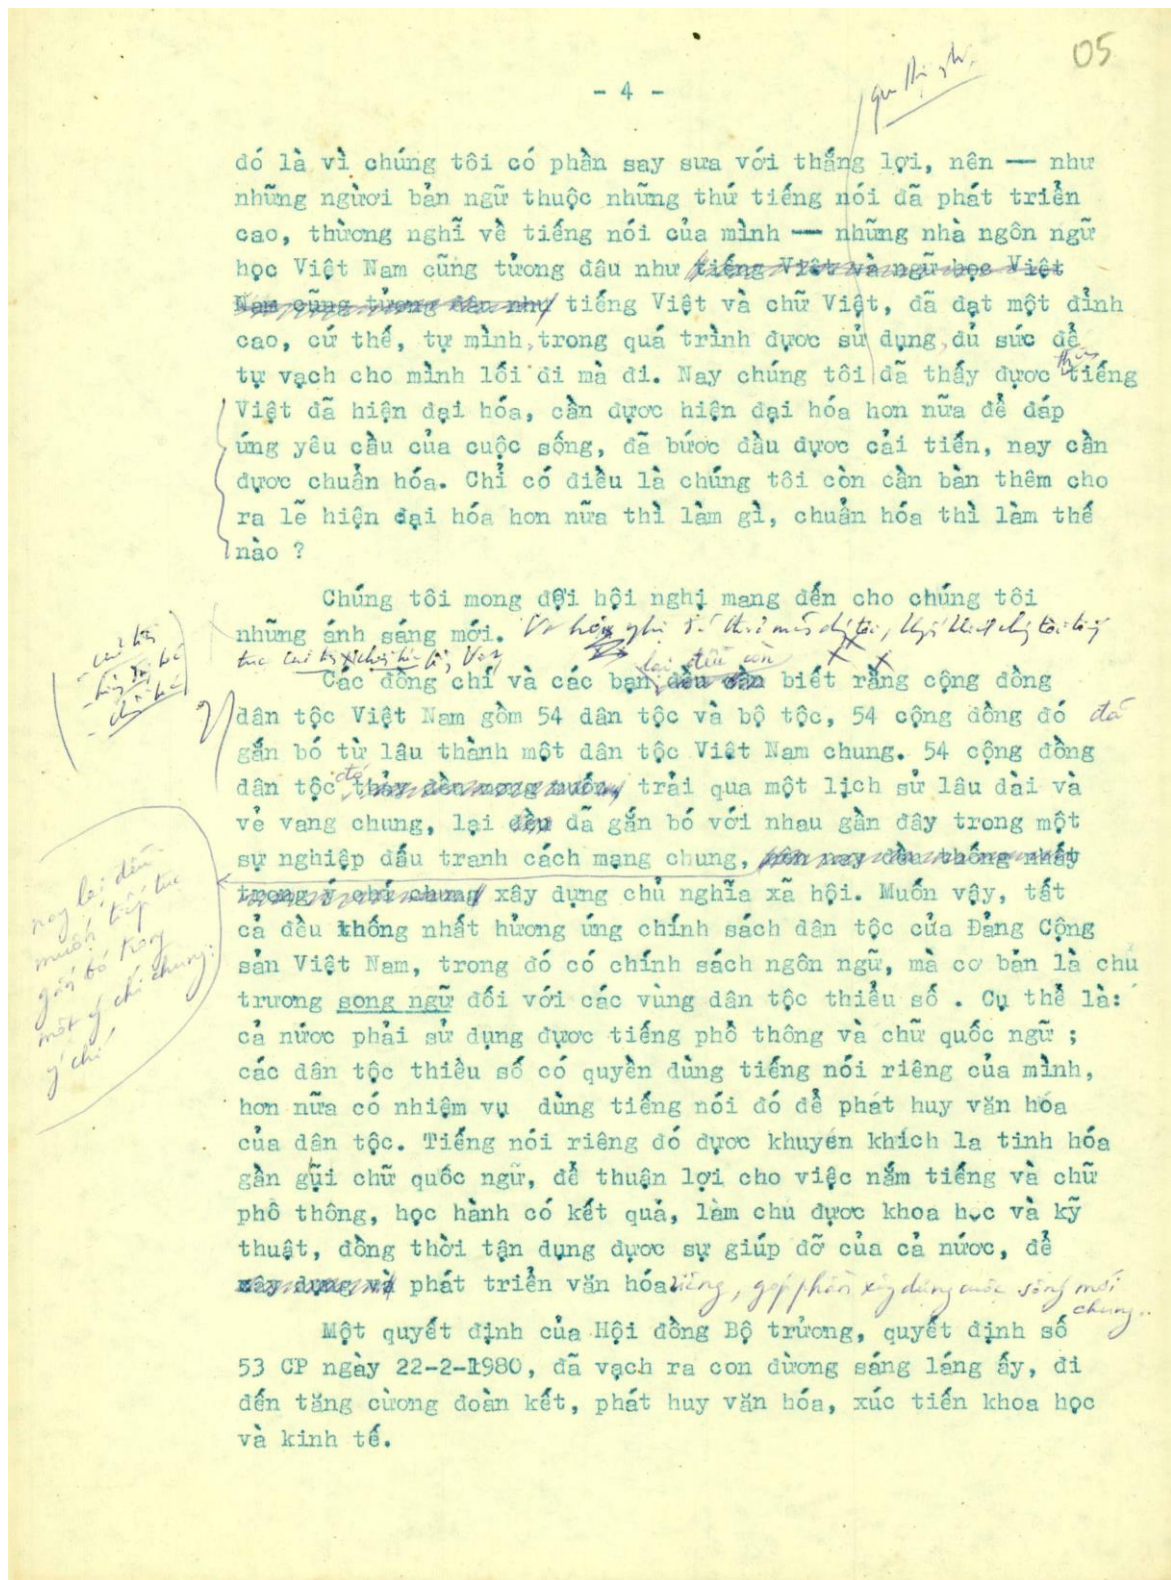 05
- 4 -
đó là vì chúng tôi có phần say sưa với thắng lợi, nên — như
những người bản ngữ thuộc những thứ tiếng nói đã phát triển
cao, thường nghĩ về tiếng nói của mình — những nhà ngôn ngữ
học Việt Nam cũng tưởng đâu như tiếng Việt và ngữ học Việt
Nam cũng tưởng đâu như tiếng Việt và chữ Việt, đã đạt một đỉnh
cao, cứ thế, tự mình, trong quá trình được sử dụng, đủ sức để
tự vạch cho mình lối đi mà đi. Nay chúng tôi đã thấy được tiếng
Việt đã hiện đại hóa, cần được hiện đại hóa hơn nữa để đáp
ứng yêu cầu của cuộc sống, đã bước đầu được cải tiến, nay cần
được chuẩn hóa. Chỉ có điều là chúng tôi còn cần bàn thêm cho
ra lẽ hiện đại hóa hơn nữa thì làm gì, chuẩn hóa thì làm thế
nào ?
Chúng tôi mong đợi hội nghị mang đến cho chúng tôi
những ánh sáng mới.
lại đều còn
Các đồng chí và các bạn đều cần biết rằng cộng đồng
dân tộc Việt Nam gồm 54 dân tộc và bộ tộc, 54 cộng đồng đó đã
gắn bó từ lâu thành một dân tộc Việt Nam chung. 54 cộng đồng
dân tộc đó thảy đều mong muốn, trải qua một lịch sử lâu dài và
vẻ vang chung, lại đều đã gắn bó với nhau gần đây trong một
sự nghiệp đấu tranh cách mạng chung, hôm nay đều thống nhất
trong ý chí chung xây dựng chủ nghĩa xã hội. Muốn vậy, tất
nay lại đều
muốn tiếp tục
gắn bó trong
một ý chí chung:
ý chí
cả đều thống nhất hưởng ứng chính sách dân tộc của Đảng Cộng
sản Việt Nam, trong đó có chính sách ngôn ngữ, mà cơ bản là chủ
trương song ngữ đối với các vùng dân tộc thiểu số . Cụ thể là:
cả nước phải sử dụng được tiếng phổ thông và chữ quốc ngữ ;
các dân tộc thiểu số có quyền dùng tiếng nói riêng của mình,
hơn nữa có nhiệm vụ dùng tiếng nói đó để phát huy văn hóa
của dân tộc. Tiếng nói riêng đó được khuyến khích la tinh hóa
gần gũi chữ quốc ngữ, để thuận lợi cho việc nắm tiếng và chữ
phổ thông, học hành có kết quả, làm chủ được khoa học và kỹ
thuật, đồng thời tận dụng được sự giúp đỡ của cả nước, để
xây dựng và phát triển văn hóa riêng, góp phần xây dựng cuộc sống mới
chung.
Một quyết định của Hội đồng Bộ trưởng, quyết định số
53 CP ngày 22-2-1980, đã vạch ra con đường sáng láng ấy, đi
đến tăng cường đoàn kết, phát huy văn hóa, xúc tiến khoa học
và kinh tế.